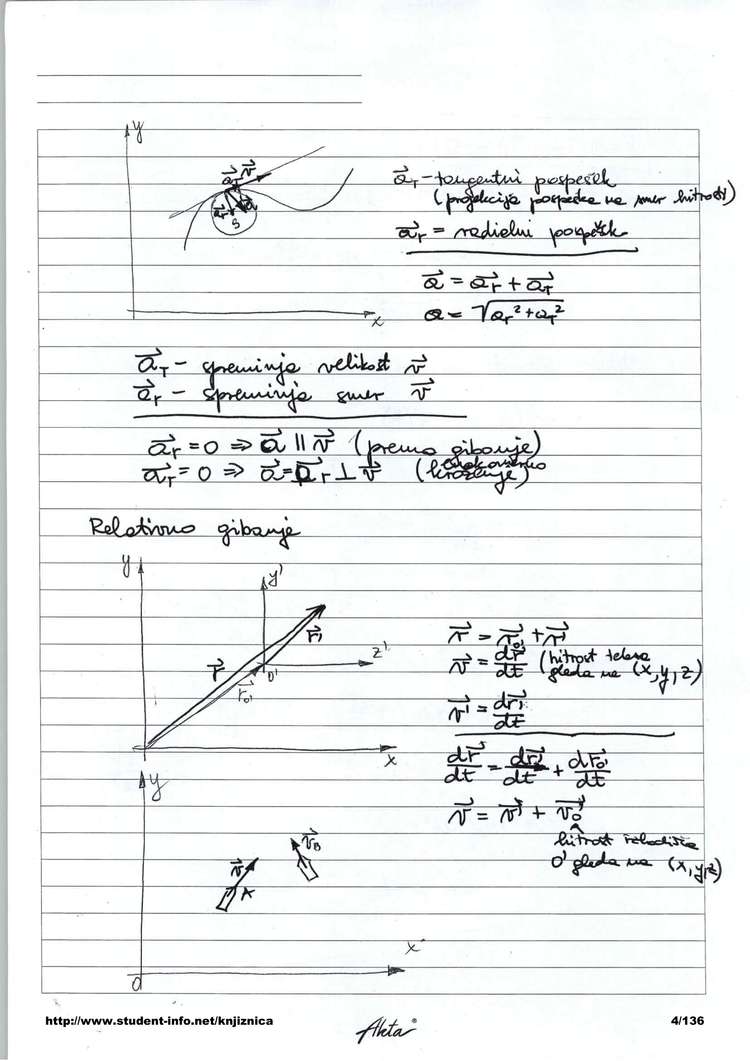 y
a⃗_T v⃗
a⃗_r a⃗
S
x
a⃗_T – tangentni pospešek
(projekcija pospeška na smer hitrosti)
a⃗_r = radialni pospešk
a⃗ = a⃗_r + a⃗_T
a = √(a_r² + a_T²)
a⃗_T – spreminja velikost v⃗
a⃗_r – spreminja smer v⃗
a⃗_r = 0 ⇒ a⃗ ∥ v⃗ (premo gibanje)
a⃗_T = 0 ⇒ a⃗ = a⃗_r ⊥ v⃗ (enakomerno kroženje)
Relativno gibanje
y
y'
r⃗'
z'
r⃗
0'
r⃗_0'
x
r⃗ = r⃗_0' + r⃗'
v⃗ = dr⃗/dt (hitrost telesa
gleda na (x,y,z)
v⃗' = dr⃗'/dt
dr⃗/dt = dr⃗'/dt + dr⃗_0'/dt
v⃗ = v⃗' + v⃗_0'
hitrost izhodišča
0' gleda na (x,y,z)
y
v⃗_B
v⃗
A
x
0
http://www.student-info.net/knjiznica
Akta
4/136